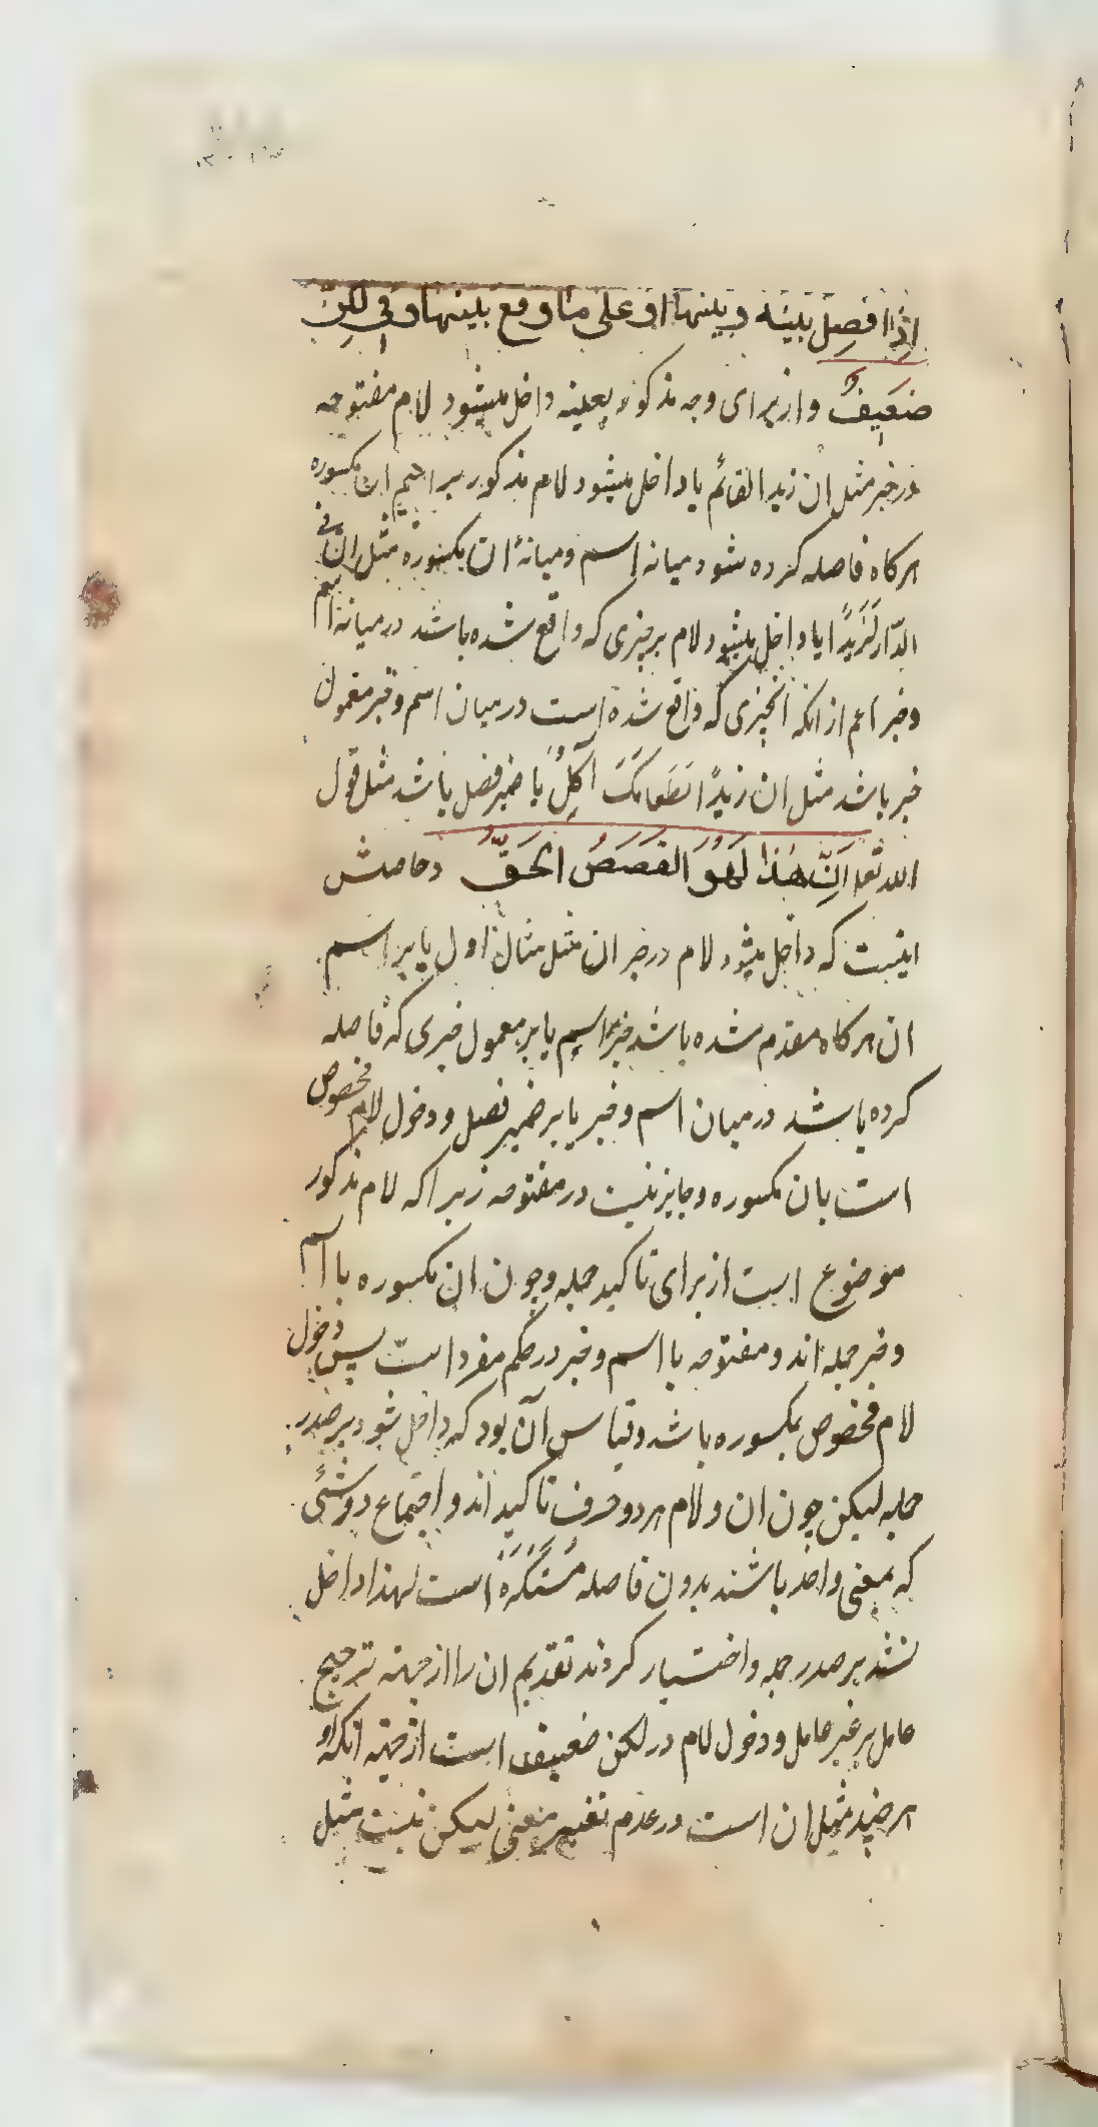 اِذَا فُصِلَ بَيْنَهُ وَ بَيْنَهَا اَوْ عَلٰى مَا وَقَعَ بَيْنَهُمَا وَ فِي لٰكِنَّ
ضَعِيفٌ و از برای وجه مذکور بعینه داخل میشود لام مفتوحه
در خبر مثل ان زیدا لقائم یا داخل میشود لام مذکور بر اسم ان مکسوره
هرکاه فاصله کرده شود میانه اسم و میانهٔ ان مکسوره مثل ان فی
الدّار لَزَیدًا یا داخل میشود لام بر چیزی که واقع شده باشد در میانه اسم
و خبر اعم از انکه انچیزی که واقع شده است در میان اسم و خبر معمول
خبر باشد مثل ان زیدًا لَطَعامَکَ اٰکِلٌ یا ضمیر فصل باشد مثل قول
الله تعا اِنَّ هٰذَا لَهُوَ الْقَصَصُ الْحَقُّ و حاصلش
اینست که داخل میشود لام در خبر ان مثل مثال اول یا بر اسم
ان هرکاه مقدم شده باشد خبر بر اسم یا بر معمول خبری که فاصله
کرده باشد در میان اسم و خبر یا بر ضمیر فصل و دخول لام مخصوص
است بان مکسوره و جایز نیست در مفتوحه زیرا که لام مذکور
موضوع است از برای تاکید جمله و چون ان مکسوره با اسم
و خبر جمله اند و مفتوحه با اسم و خبر در حکم مفرد است پس دخول
لام مخصوص بمکسوره باشد و قیاس آن بود که داخل شود بر صدر
جمله لیکن چون ان و لام هر دو حرف تاکید اند و اجتماع دو شئی
که بمعنی واحد باشند بدون فاصله مُسْتَکْرَه است لهذا داخل
نشد بر صدر جمله و اختیار کردند تقدیم ان را از جهته ترجیح
عامل بر غیر عامل و دخول لام در لکن ضعیف است از جهته انکه او
هر چند مثل ان است در عدم تغییر معنی لیکن نیست مثل